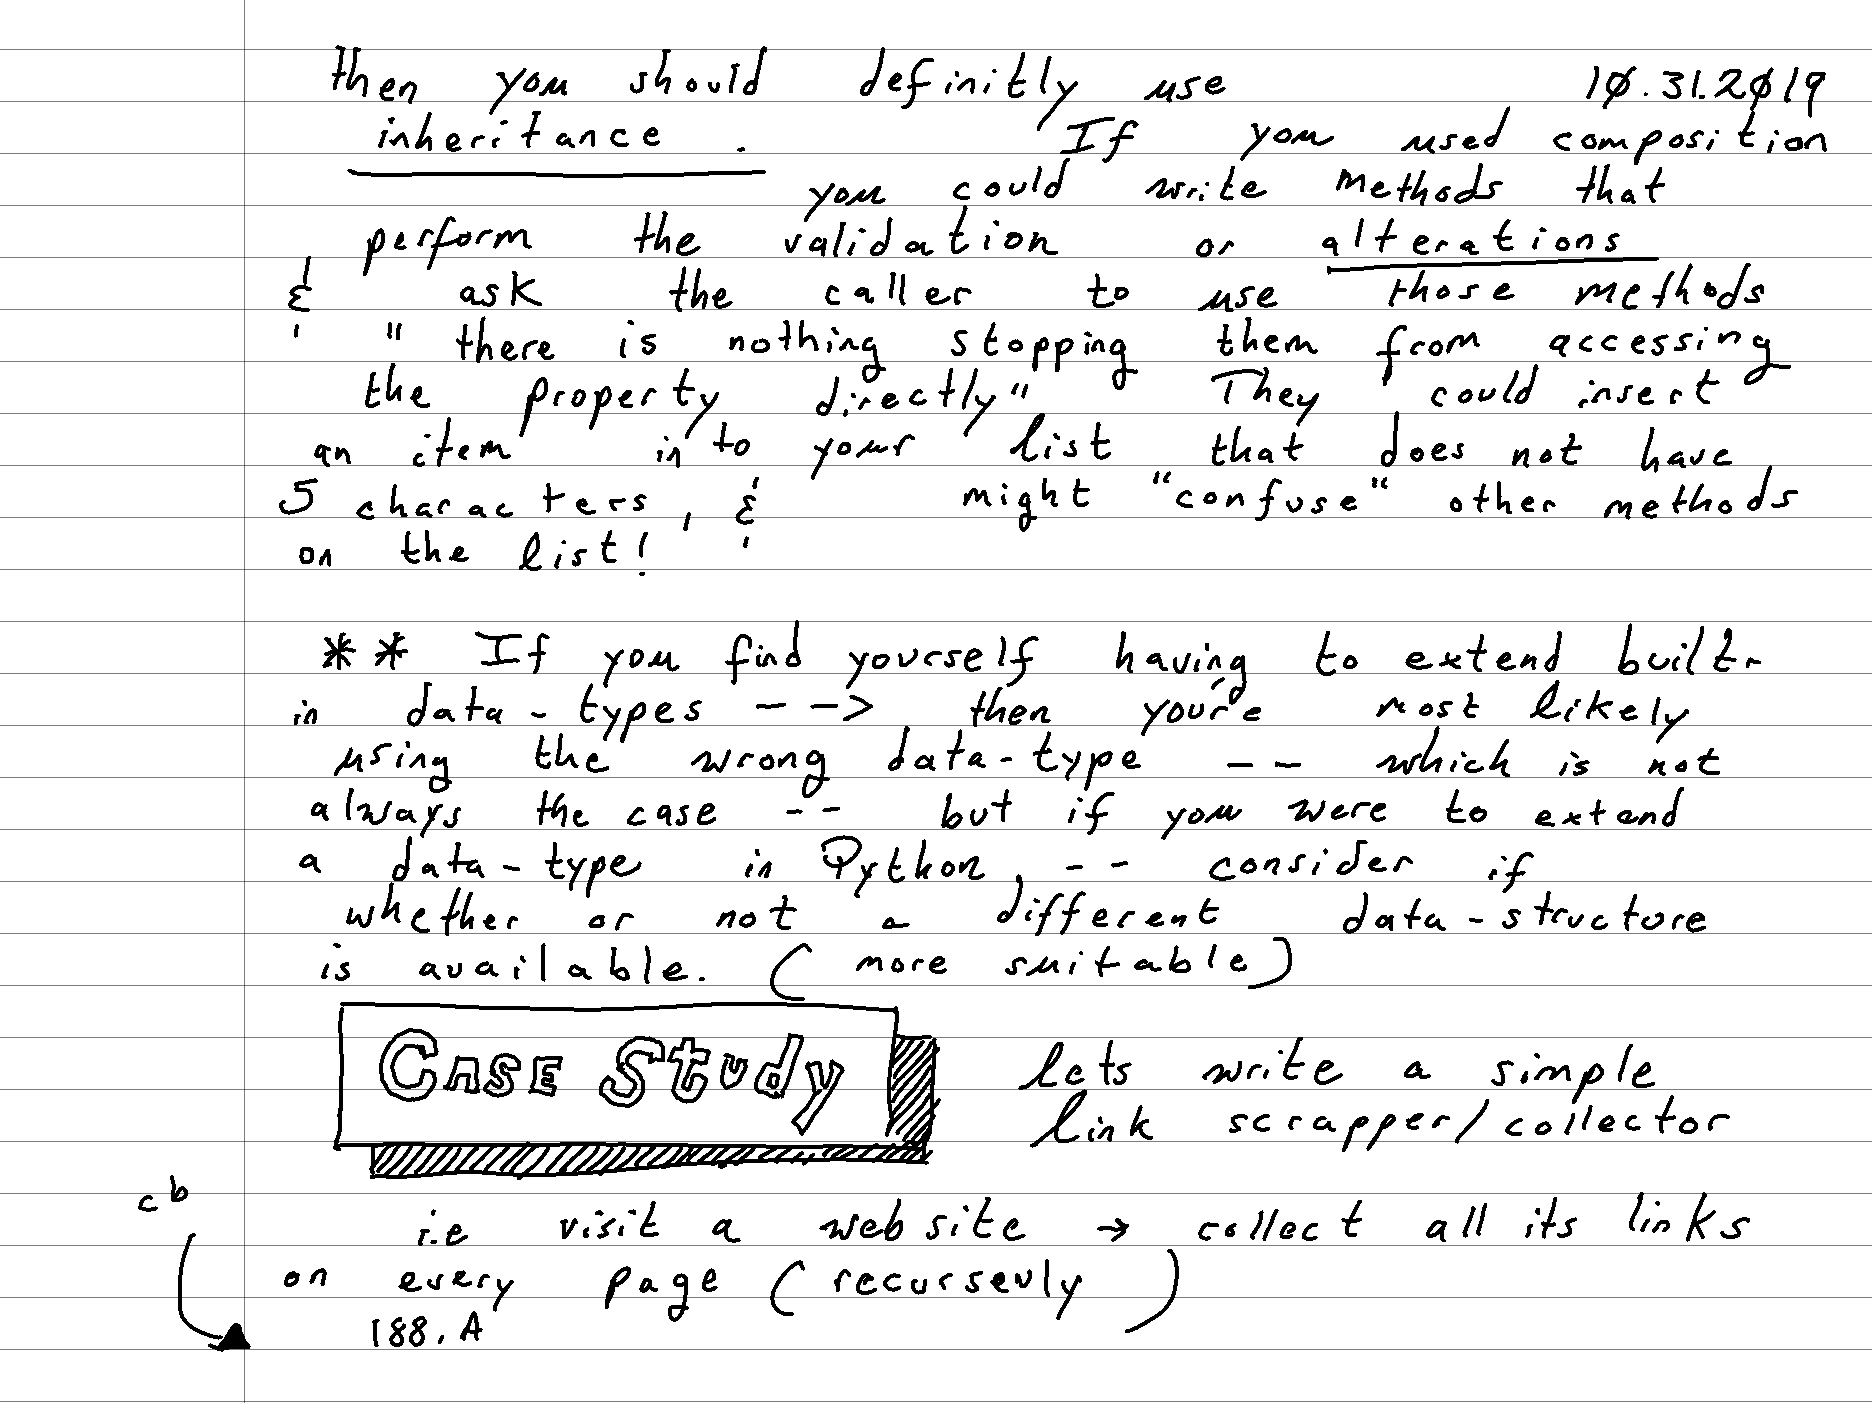 then you should definitly use 10.31.2019
inheritance. If you used composition
you could write methods that
perform the validation or alterations
& ask the caller to use those methods
" there is nothing stopping them from accessing
the property directly" They could insert
an item into your list that does not have
5 characters, & might "confuse" other methods
on the list!
** If you find yourself having to extend built-
in data-types --> then you're most likely
using the wrong data-type -- which is not
always the case -- but if you were to extend
a data-type in Python, -- consider if
whether or not a different data-structure
is available. (more suitable)
CASE STUdy lets write a simple
link scrapper/collector
cb
i.e visit a website → collect all its links
on every page (recursevly)
188.A